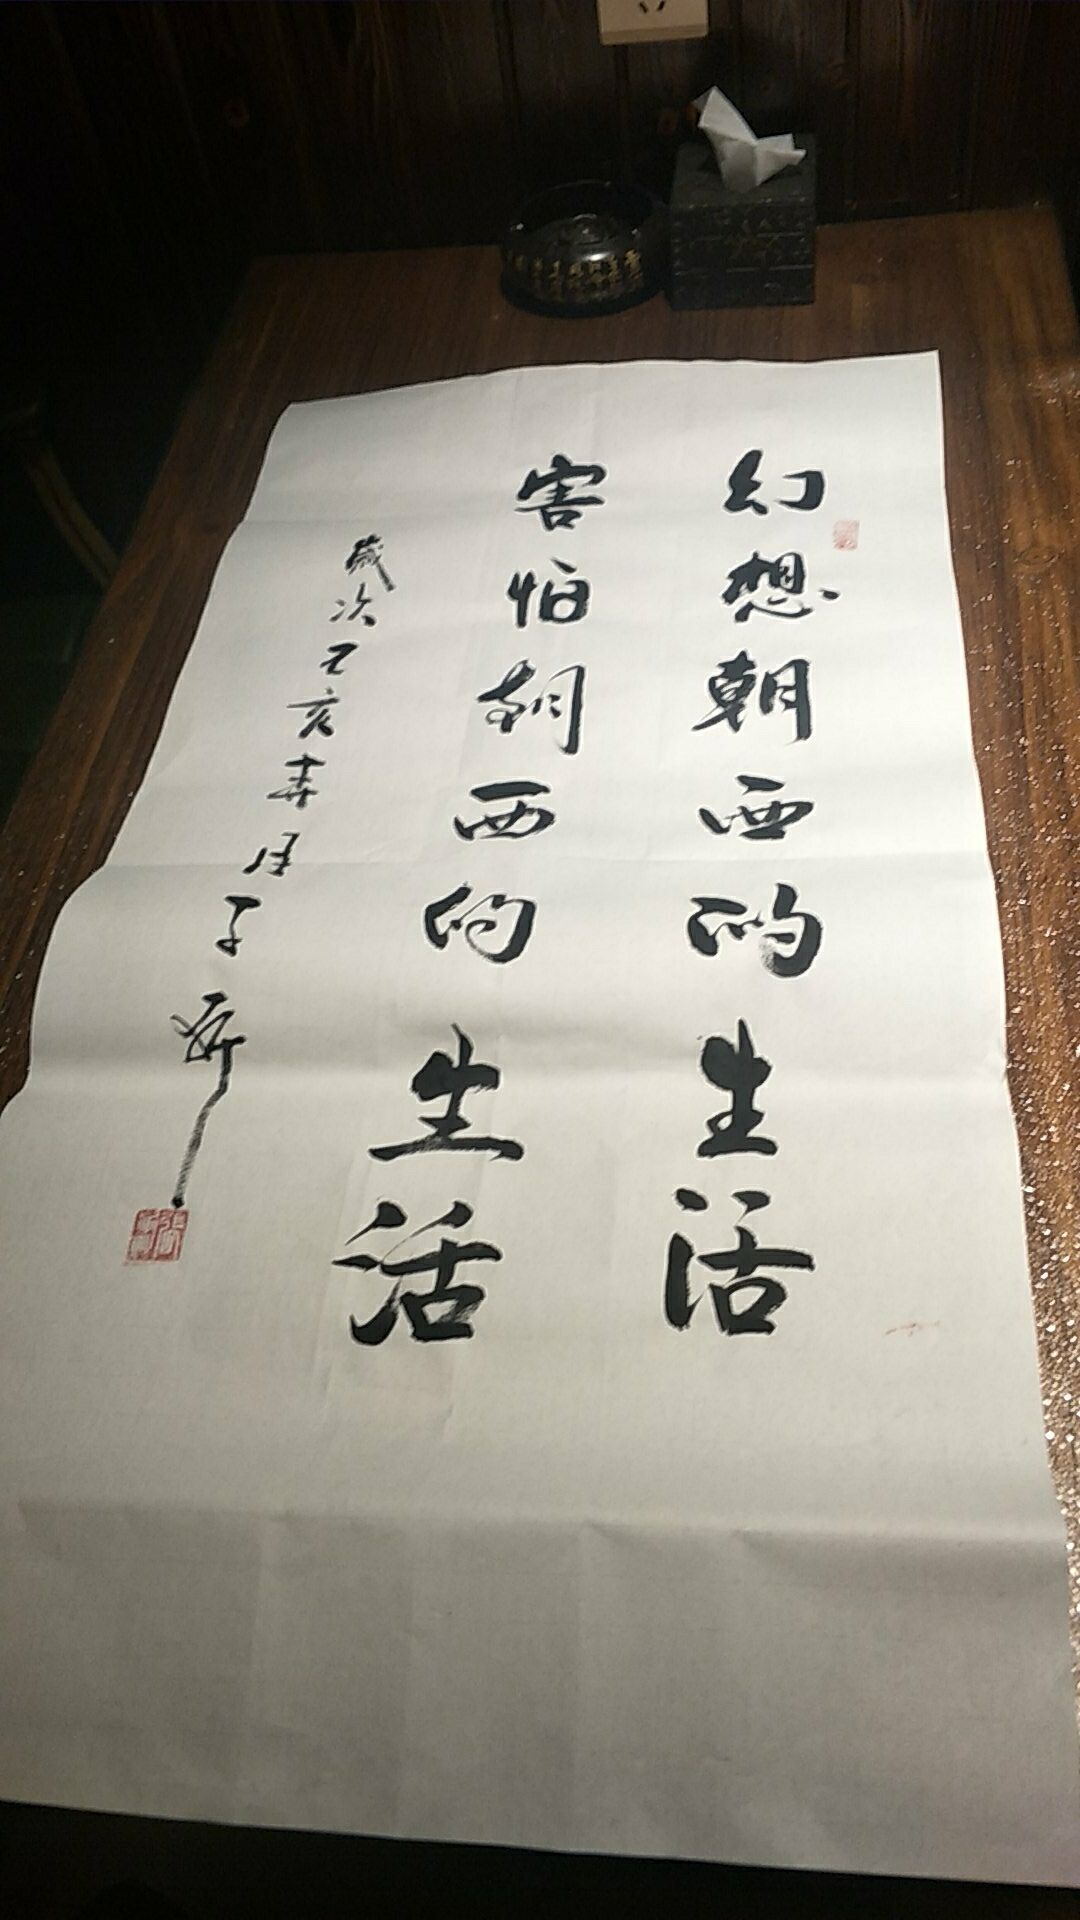 幻想朝西的生活
害怕朝西的生活
歲次己亥春月子昕